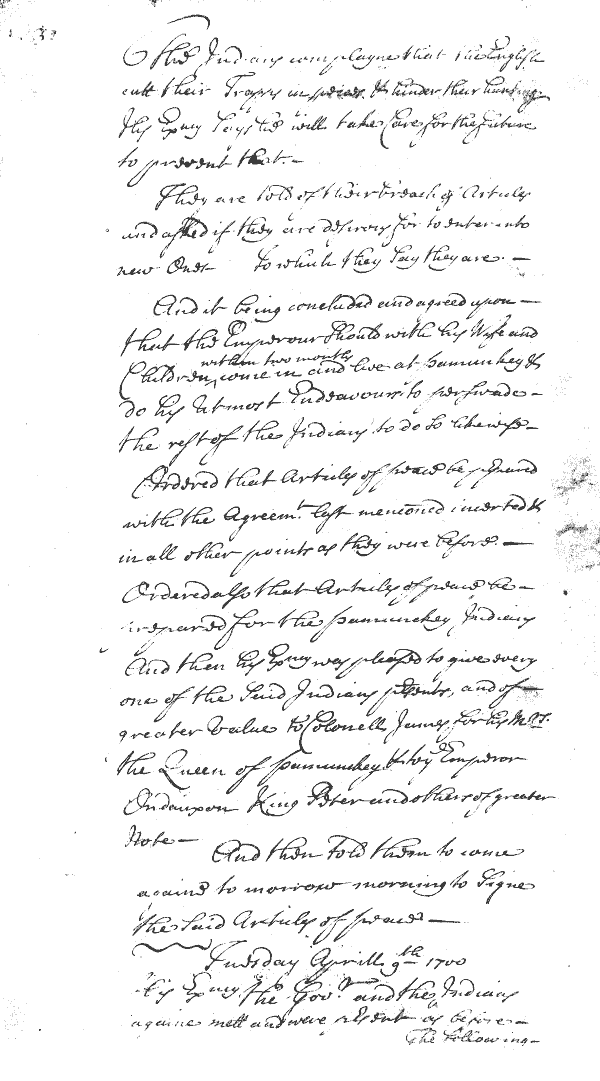 The Indians complayne that the English
cutt their Trapps in peices & hinder their hunting
His Exncy Says hee will take Care for the Future
to prevent that.—
They are told of their breach of Articles
and asked if they are desirous for to enter into
new Ones to which they Say they are.—
And it being concluded and agreed upon—
that the Emperour Should with his Wife and
within two months
Children, come in and live at Pamunkey &
do his utmost Endeavours to perswade—
the rest of the Indians to do so likewise—
Ordered that Articles of peace be prepared
with the Agreemt. last mencioned inserted &
in all other points as they were before.—
Ordered also that Articles of peace be—
prepared for the Pamunkey Indians
And then his Exncy was pleased to give every
one of the Said Indians prsents, and of—
greater Value to Colonell James, for his Matie.
the Queen of Pamunkey & to ye Emperor
King Peter and others of greater
Note—
And then told them to come
againe to morrow morning to Signe
the Said Articles of peace—
Tuesday Aprill 9th 1700
His Exncy the Govr. and the Indians
againe mett and were prsent as before—
The following—